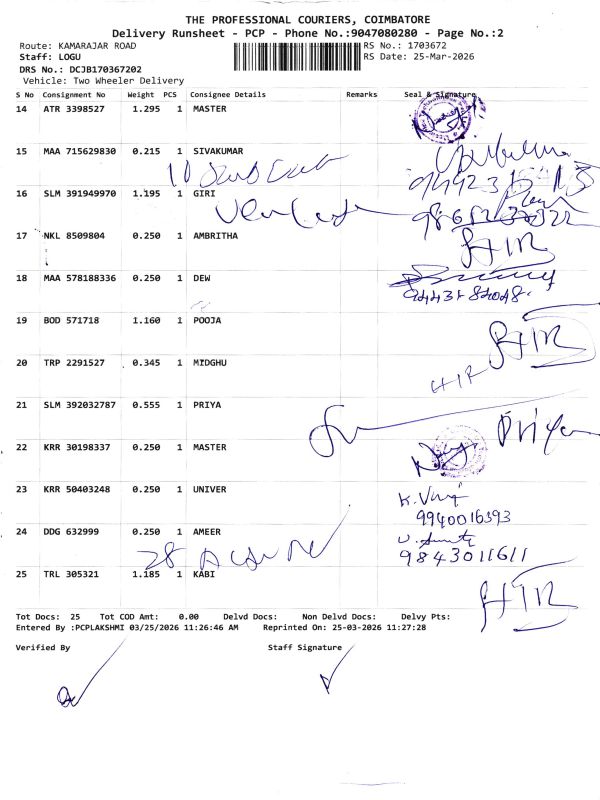 THE PROFESSIONAL COURIERS, COIMBATORE
Delivery Runsheet - PCP - Phone No.:9047080280 - Page No.:2
Route: KAMARAJAR ROAD RS No.: 1703672
Staff: LOGU RS Date: 25-Mar-2026
DRS No.: DCJB170367202
Vehicle: Two Wheeler Delivery
S No Consignment No Weight PCS Consignee Details Remarks Seal & Signature
14 ATR 3398527 1.295 1 MASTER
15 MAA 715629830 0.215 1 SIVAKUMAR
16 SLM 391949970 1.195 1 GIRI
17 NKL 8509804 0.250 1 AMBRITHA
18 MAA 578188336 0.250 1 DEW
19 BOD 571718 1.160 1 POOJA
20 TRP 2291527 0.345 1 MIDGHU
21 SLM 392032787 0.555 1 PRIYA
Priya
22 KRR 30198337 0.250 1 MASTER
23 KRR 50403248 0.250 1 UNIVER
9940016393
24 DDG 632999 0.250 1 AMEER
28
9843011611
25 TRL 305321 1.185 1 KABI
Tot Docs: 25 Tot COD Amt: 0.00 Delvd Docs: Non Delvd Docs: Delvy Pts:
Entered By :PCPLAKSHMI 03/25/2026 11:26:46 AM Reprinted On: 25-03-2026 11:27:28
Verified By Staff Signature